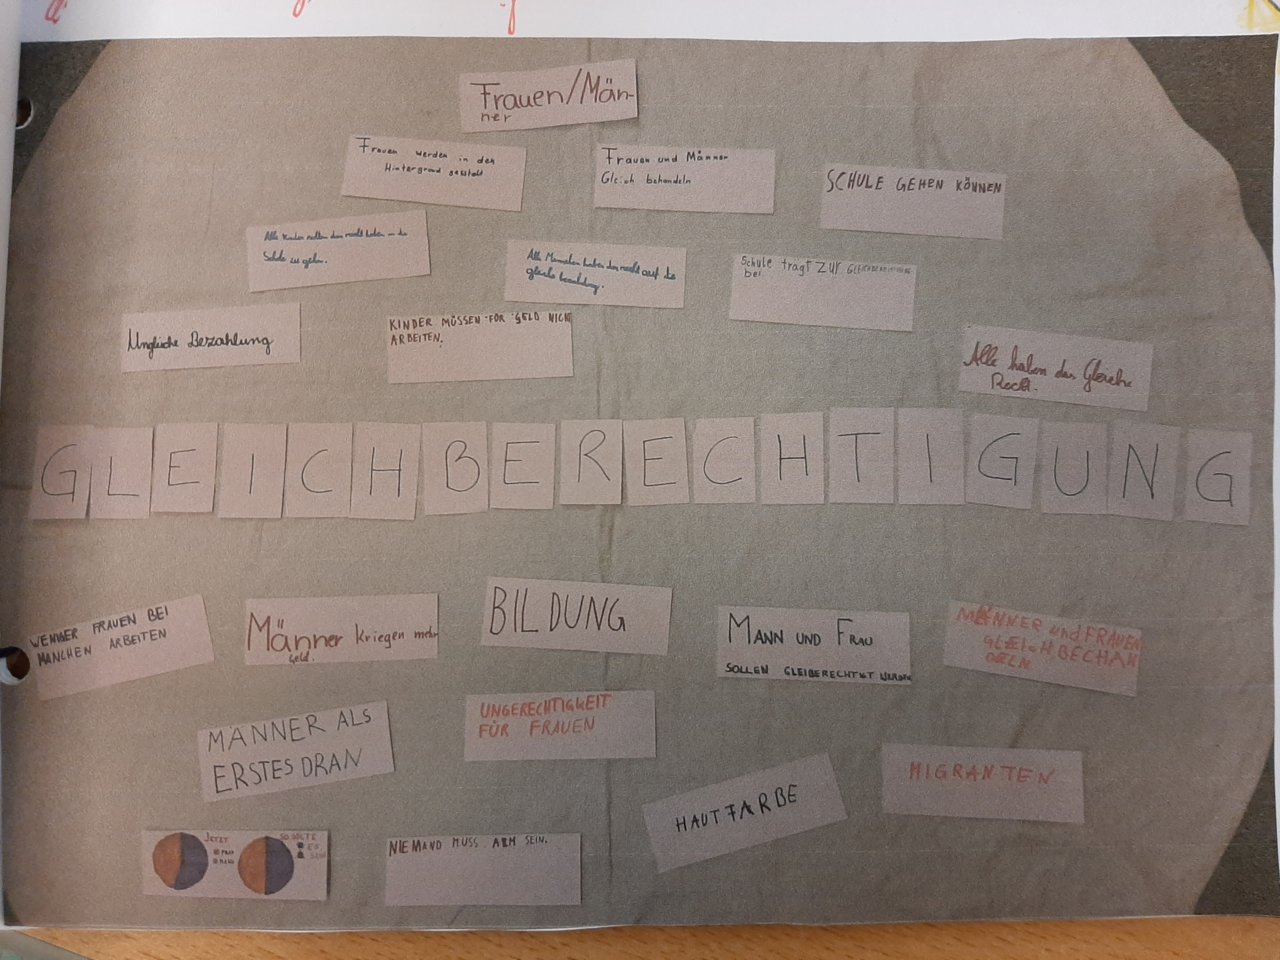 Frauen/Män-
ner
Frauen werden in den
Hintergrund gestellt
Frauen und Männer
Gleich behandeln
SCHULE GEHEN KÖNNEN
Alle Kinder sollten das recht haben in die
Schule zu gehen.
Alle Menschen haben das recht auf die
gleiche bezahlung.
Schule trägt zur GLEICHBERECHTIGUNG
bei.
Ungleiche Bezahlung
KINDER MÜSSEN FÜR GELD NICHT
ARBEITEN.
Alle haben das Gleiche
Recht.
GLEICHBERECHTIGUNG
WENIGER FRAUEN BEI
MANCHEN ARBEITEN
Männer kriegen mehr
Geld.
BILDUNG
MANN UND FRAU
SOLLEN GLEIBERECHTIGT WERDEN
MÄNNER und FRAUEN
GLEICH BECHAN
DELN
MÄNNER ALS
ERSTES DRAN
UNGERECHTIGKEIT
FÜR FRAUEN
HAUTFARBE
MIGRANTEN
JETZT
SO SOLLTE
ES
SEIN
NIEMAND MUSS ARM SEIN.